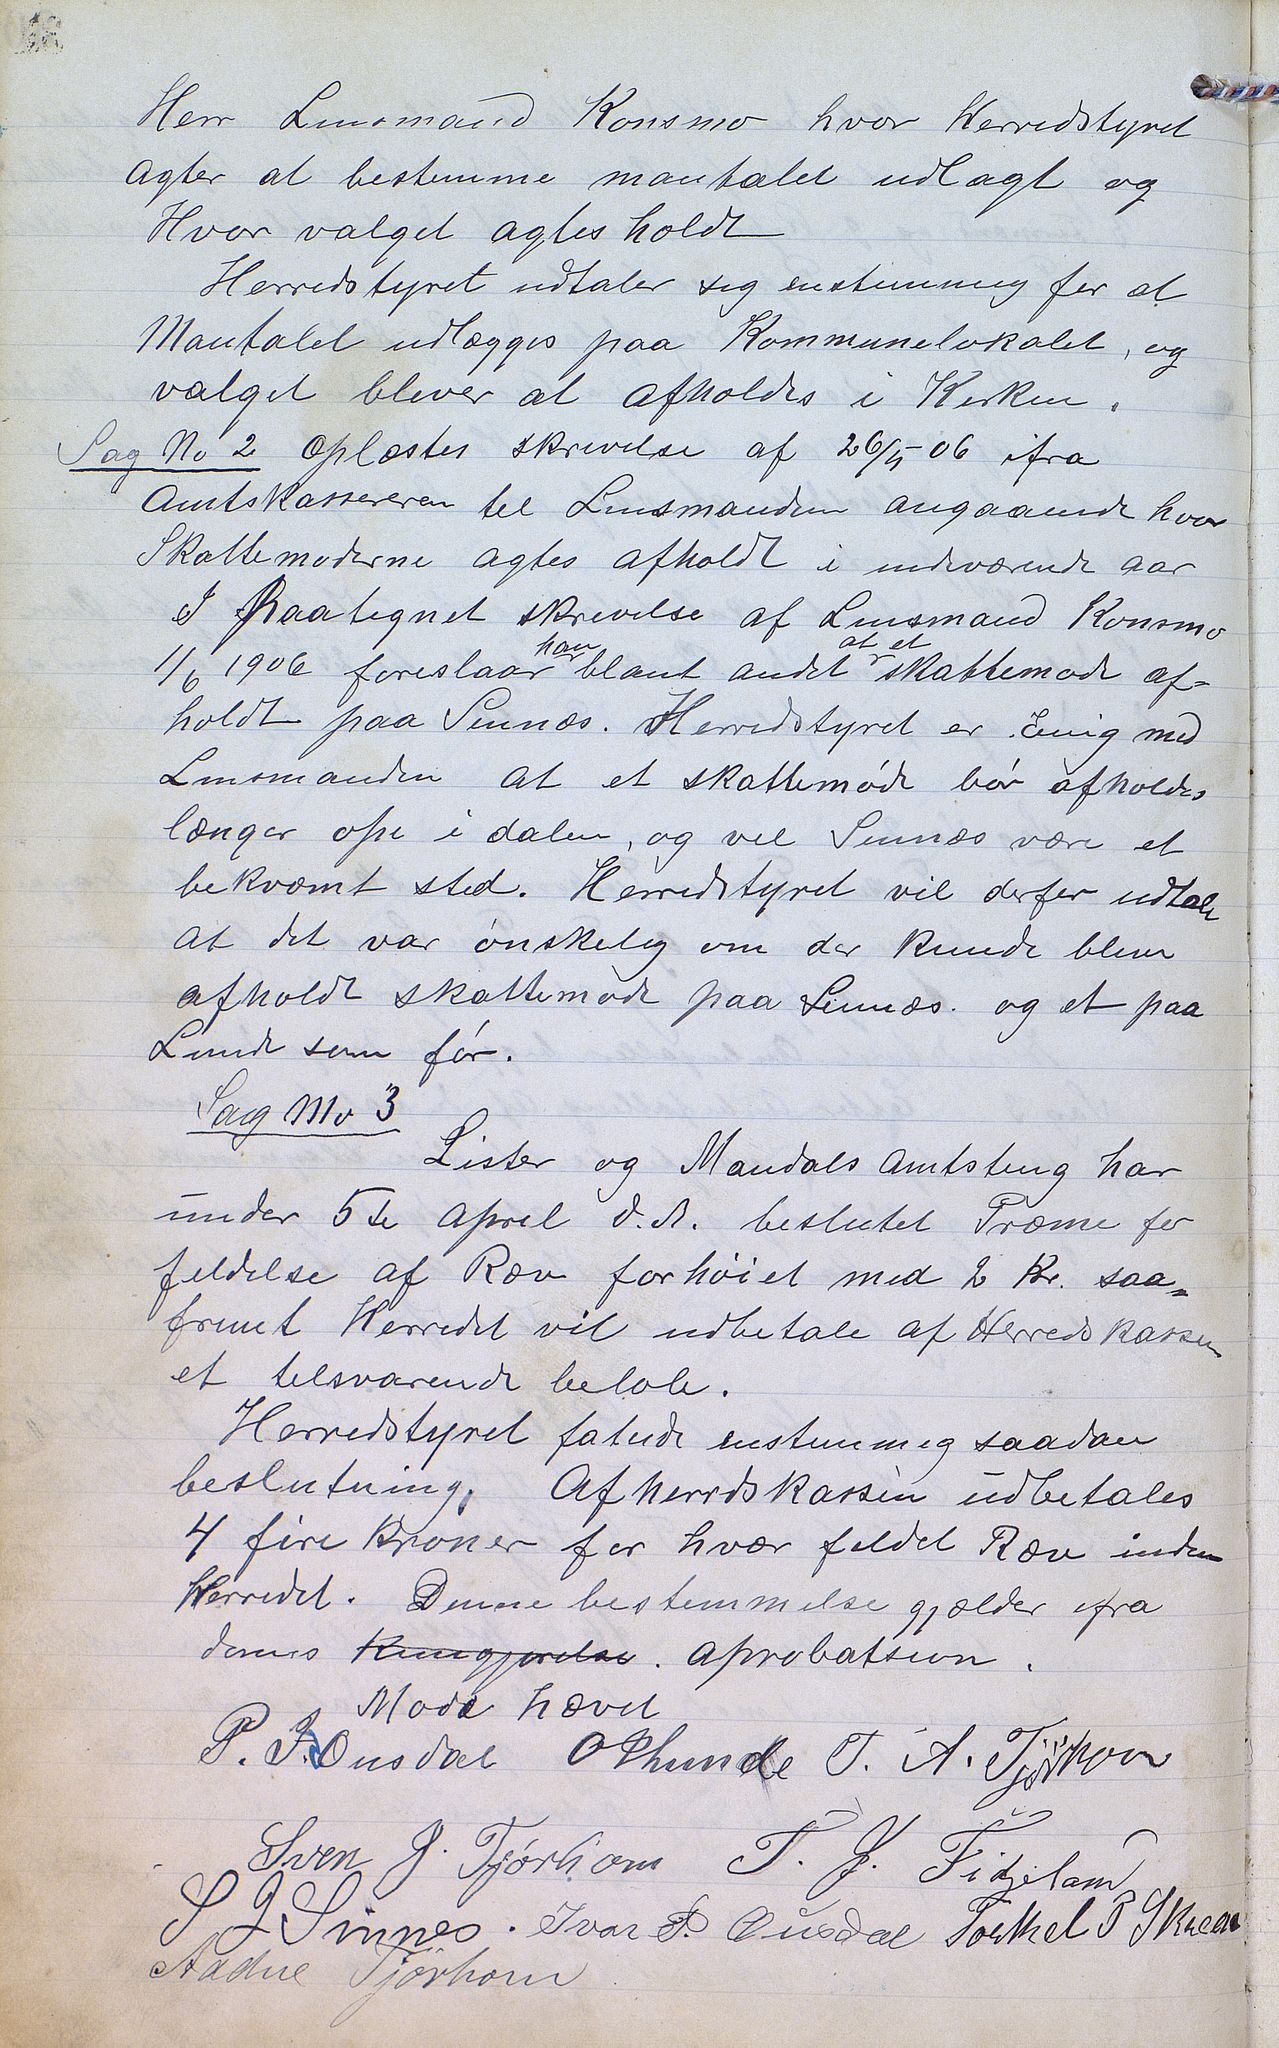 Herr Lensmand Konsmo hvor Herredstyret
agter at bestemme mantalet udlagt og
Hvor valget agtes holdt
Herredstyret udtaler sig enstemmig for at
Mantalet udlægges paa Kommunelokalet, og
valget bliver at afholdes i Kirken.
Sag No 2 Oplæstes skrivelse af 26/5 06 ifra
Amtskassereren til Lensmanden angaaende hvor
Skattemøderne agtes afholdt i indeværende aar
I Paategnet skrivelse af Lensmand Konsmo
1/6 1906 foreslaar han blant andet at et skattemøde af-
holdt paa Sinnæs. Herredstyret er Enig med
Lensmanden at et skattemøde bør afholdes
længer ope i dalen, og vil Sinnæs være et
bekvæmt sted. Herredstyret vil derfor udtale
at det var ønskelig om der kunde bliver
afholdt skattemøde paa Sinnæs. og et paa
Lunde som før.
Sag No 3
Lister og Mandals amtsting har
under 5te April d.A. beslutet Præmie for
feldelse af Ræv forhøiet med 2 Kr. saa-
fremt Herredet vil udbetale af Herredskassen
et tilsvarende beløb.
Herredstyret fatede enstemmig saadan
beslutning. Af herredskassen udbetales
4 fire kroner for hvær feldet Ræv inden
Herredet. Denne bestemmelse gjælder ifra
dennes Kungjørelse. aprobatsion.
Møde hævet
P. J. Ousdal O Hunde T. A. Tjørhom
Sven J. Tjørhom T. J. Fidjeland
S J Sinnes. Ivar P. Ousdal Torkel P Skreaa
Aadne Tjørhom